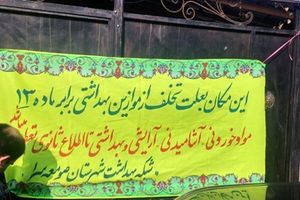 این مکان بعلت تخلف از موازین بهداشتی برابر ماده ۱۳
مواد خوردنی، آشامیدنی، آرایشی و بهداشتی تا اطلاع ثانوی تعطیل
شبکه بهداشت شهرستان صومعه سرا